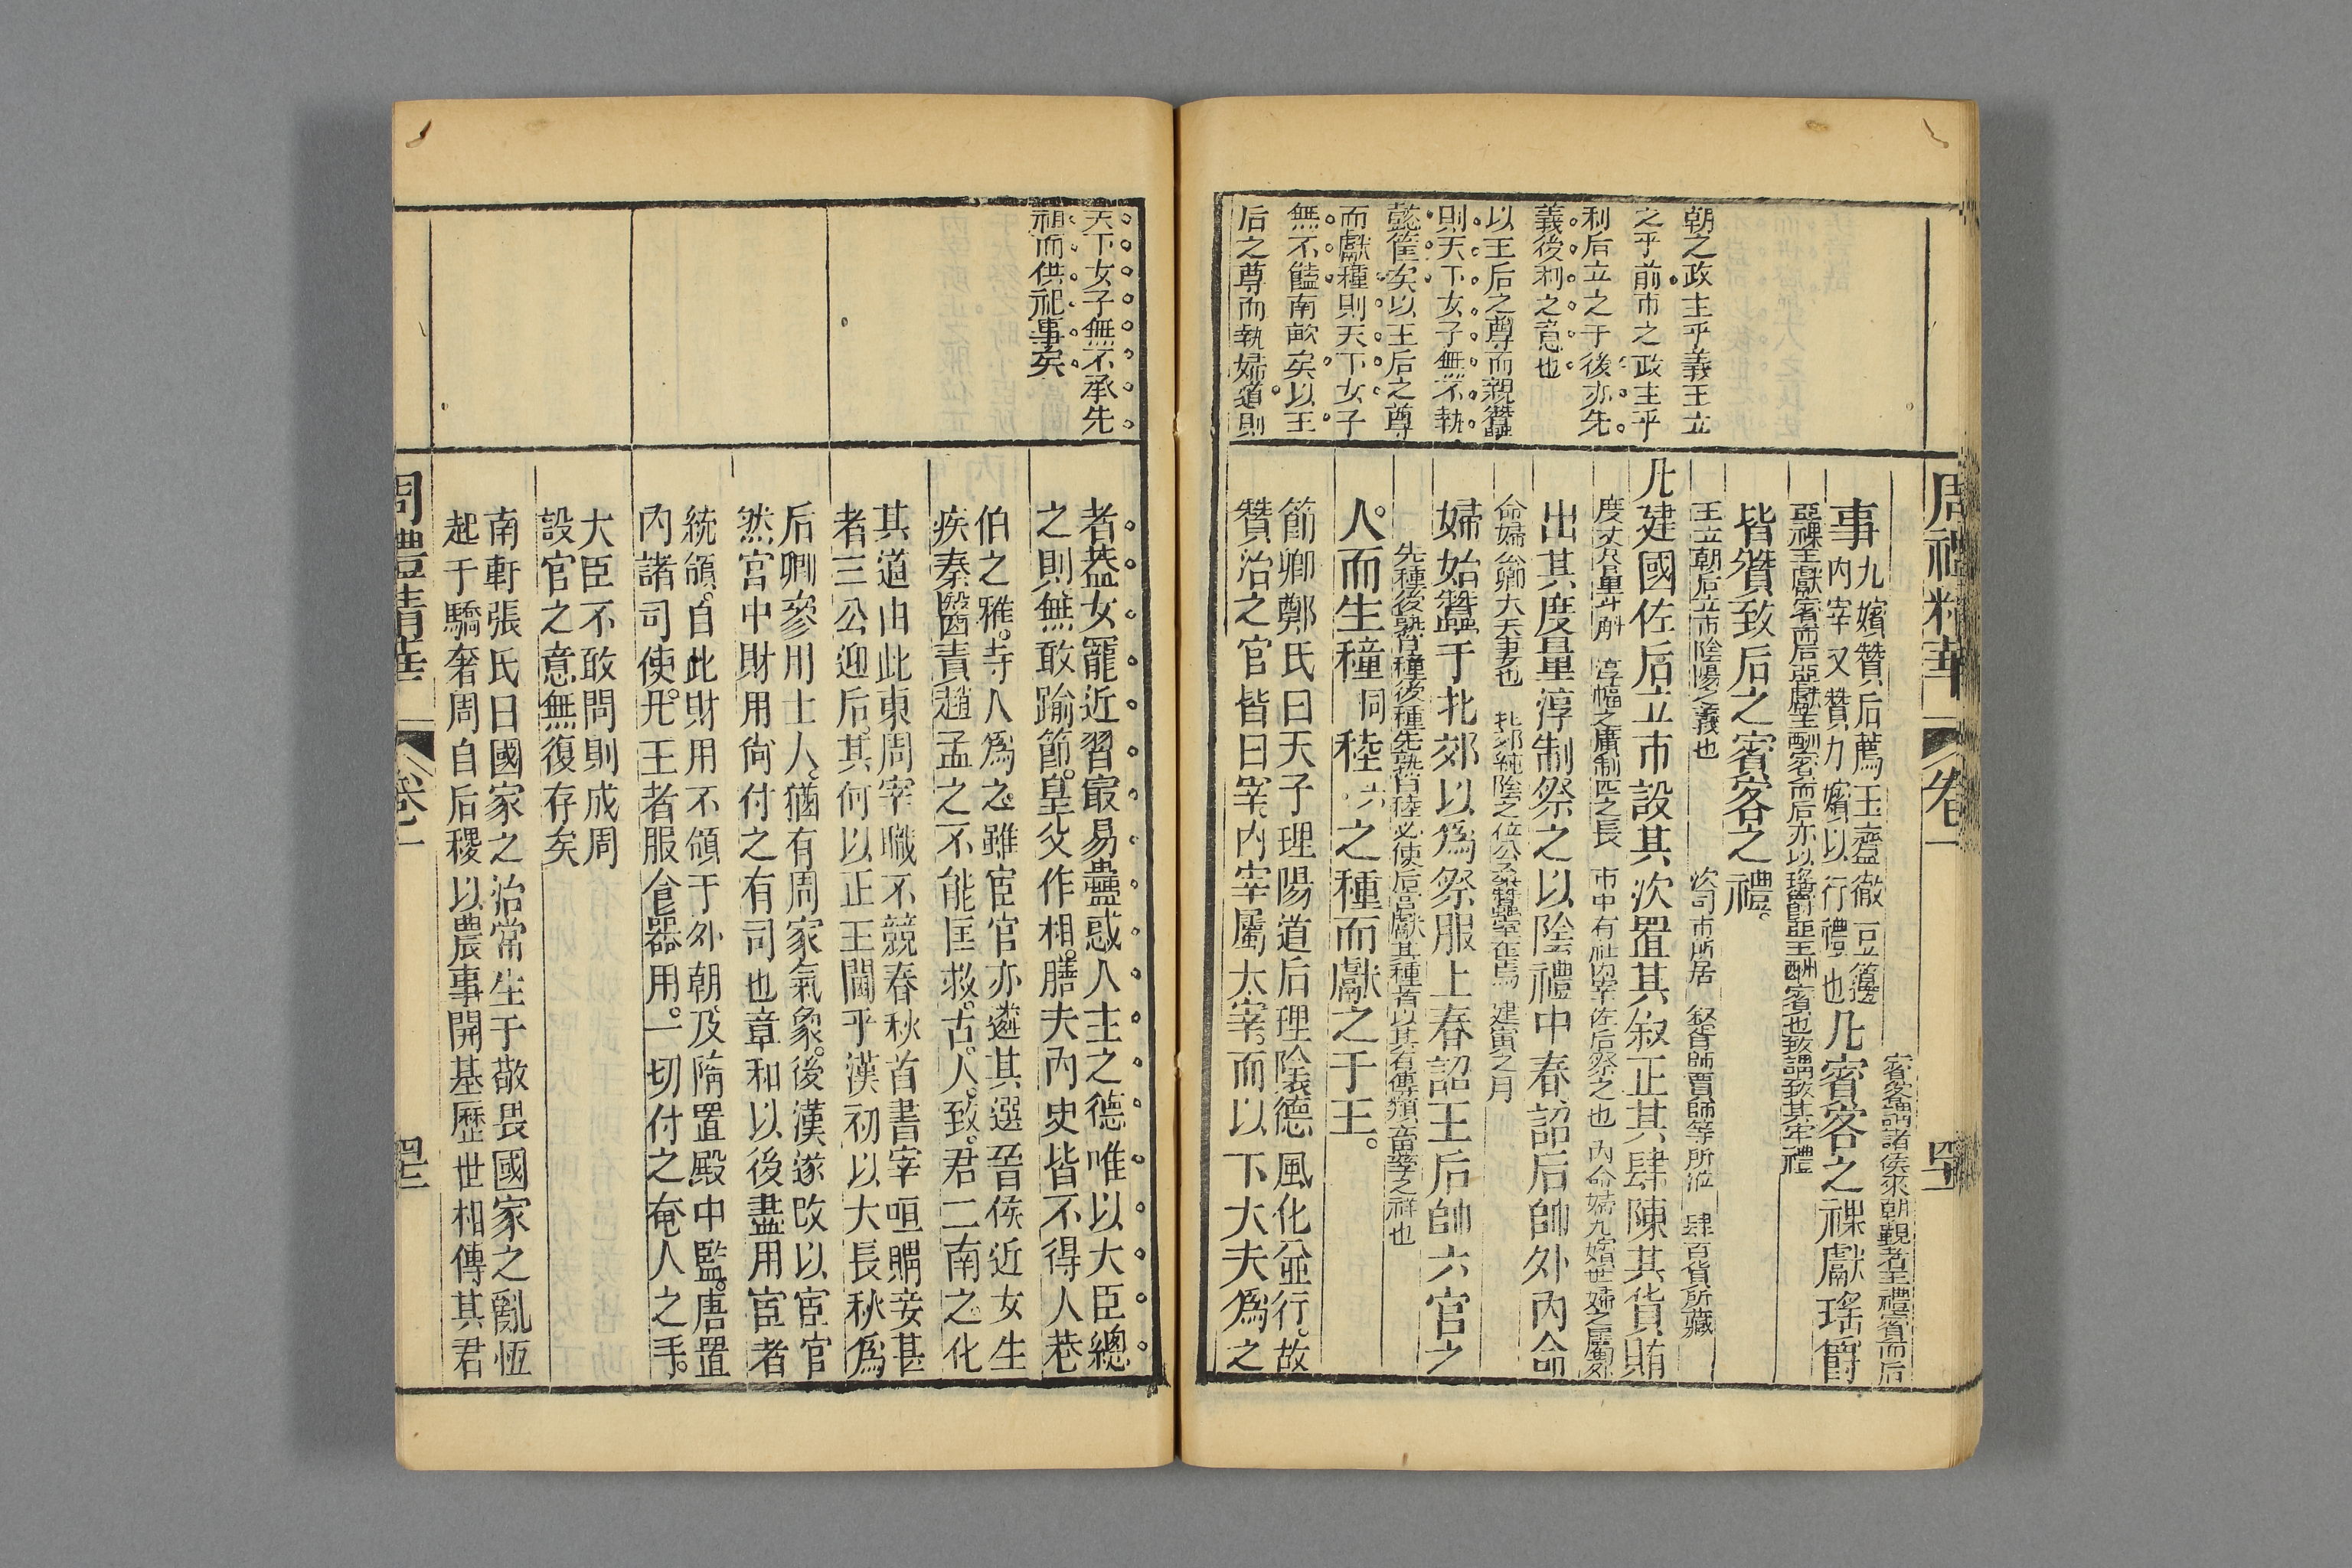 周禮精華
卷一
朝之政主乎義王立
之乎前市之政主乎
利后立之于後亦先
義後利之意也
以王后之尊而親蠶
則天下女子無不執
懿筐矣以王后之尊
而獻穜則天下女子
無不饁南畝矣以王
后之尊而執婦道則
賓客謂諸侯來朝覲者王禮賓而后
事九嬪贊后薦玉齍徹豆籩
內宰又贊九嬪以行禮也凡賓客之祼獻瑤爵
亞祼王獻賓而后亞獻王酬賓而后亦以瑤爵亞王酬賓也致謂致其牢禮
皆贊致后之賓客之禮。
王立朝后立市陰陽之義也　次司市所居　叙胥師賈師等所涖　肆百貨所藏
凡建國佐后立市設其次置其叙正其肆陳其貨賄
度丈尺量斗斛　淳幅之廣制匹之長　市中有社內宰佐后祭之也　內命婦九嬪世婦之屬外
出其度量淳制祭之以陰禮中春詔后帥外內命
命婦公卿大夫妻也　北郊純陰之位公桑蠶室在焉　建寅之月
婦始蠶于北郊以爲祭服上春詔王后帥六官之
先種後熟曰穜後種先熟曰稑必使后宮獻其種者以其有傳類蕃孳之祥也
人。而生穜同稑六之種而獻之于王。
節卿鄭氏曰天子理陽道后理陰德風化並行。故
贊治之官皆曰宰。內宰屬太宰。而以下大夫爲之
天下女子無不承先
祖而供祀事矣
者蓋女寵近習最易蠱惑人主之德唯以大臣總
之則無敢踰節。皇父作相。膳夫內史皆不得人巷
伯之雅。寺人爲之。雖宦官亦遴其選晉侯近女生
疾秦醫責趙孟之不能匡救。古人。致君二南之化
其道由此東周宰職不競春秋首書宰咺賵妾甚
者三公迎后其何以正王闈乎漢初以大長秋爲
后卿參用士人。猶有周家氣象。後漢遂改以宦官
然宮中財用尙付之有司也章和以後盡用宦者
統領。自此財用不領于外朝及隋置殿中監。唐置
內諸司使。凡王者服食器用。一切付之奄人之手。
大臣不敢問則成周
設官之意無復存矣
南軒張氏曰國家之治常生于敬畏國家之亂恆
起于驕奢周自后稷以農事開基歷世相傳其君
周禮精華
卷一